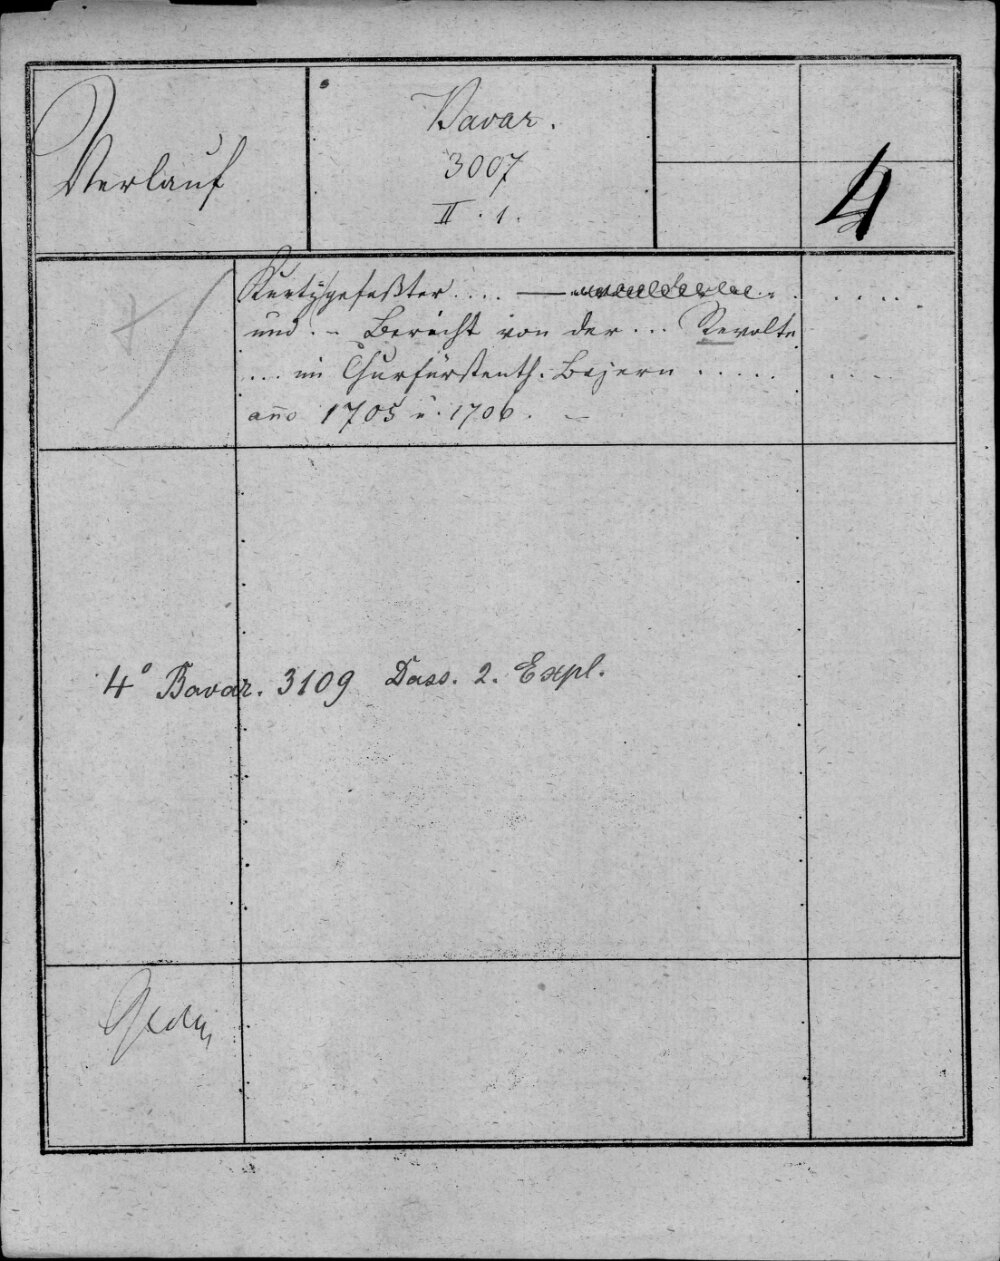 Verlauf
Bavar.
3007
II. 1.
4
Kurtzgefaßter .... —
und . – Bericht von der ... Revolte
... im Churfürstenth. Bejern .....
año 1705 u. 1706. –
4° Bavar. 3109 Dass. 2. Expl.